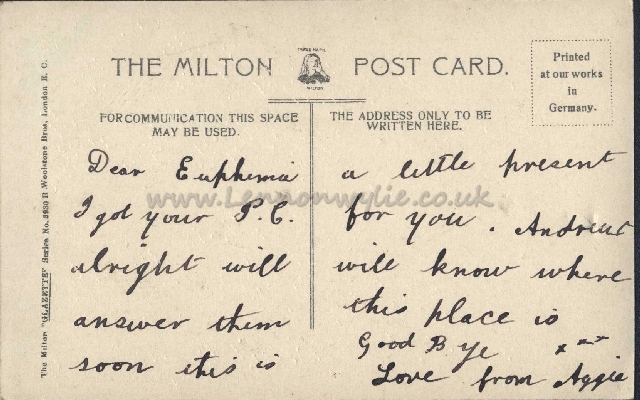 TRADE MARK
MILTON
THE MILTON POST CARD.
Printed
at our works
in
Germany.
FOR COMMUNICATION THIS SPACE
MAY BE USED.
THE ADDRESS ONLY TO BE
WRITTEN HERE.
The Milton "GLAZETTE" Series No. Woolstone Bros, London E. C.
Dear Euphemia
I got your P.C.
alright will
answer them
soon this is
a little present
for you. Andrew
will know where
this place is
Good Bye xxx
Love from Aggie
www.Lennonwylie.co.uk